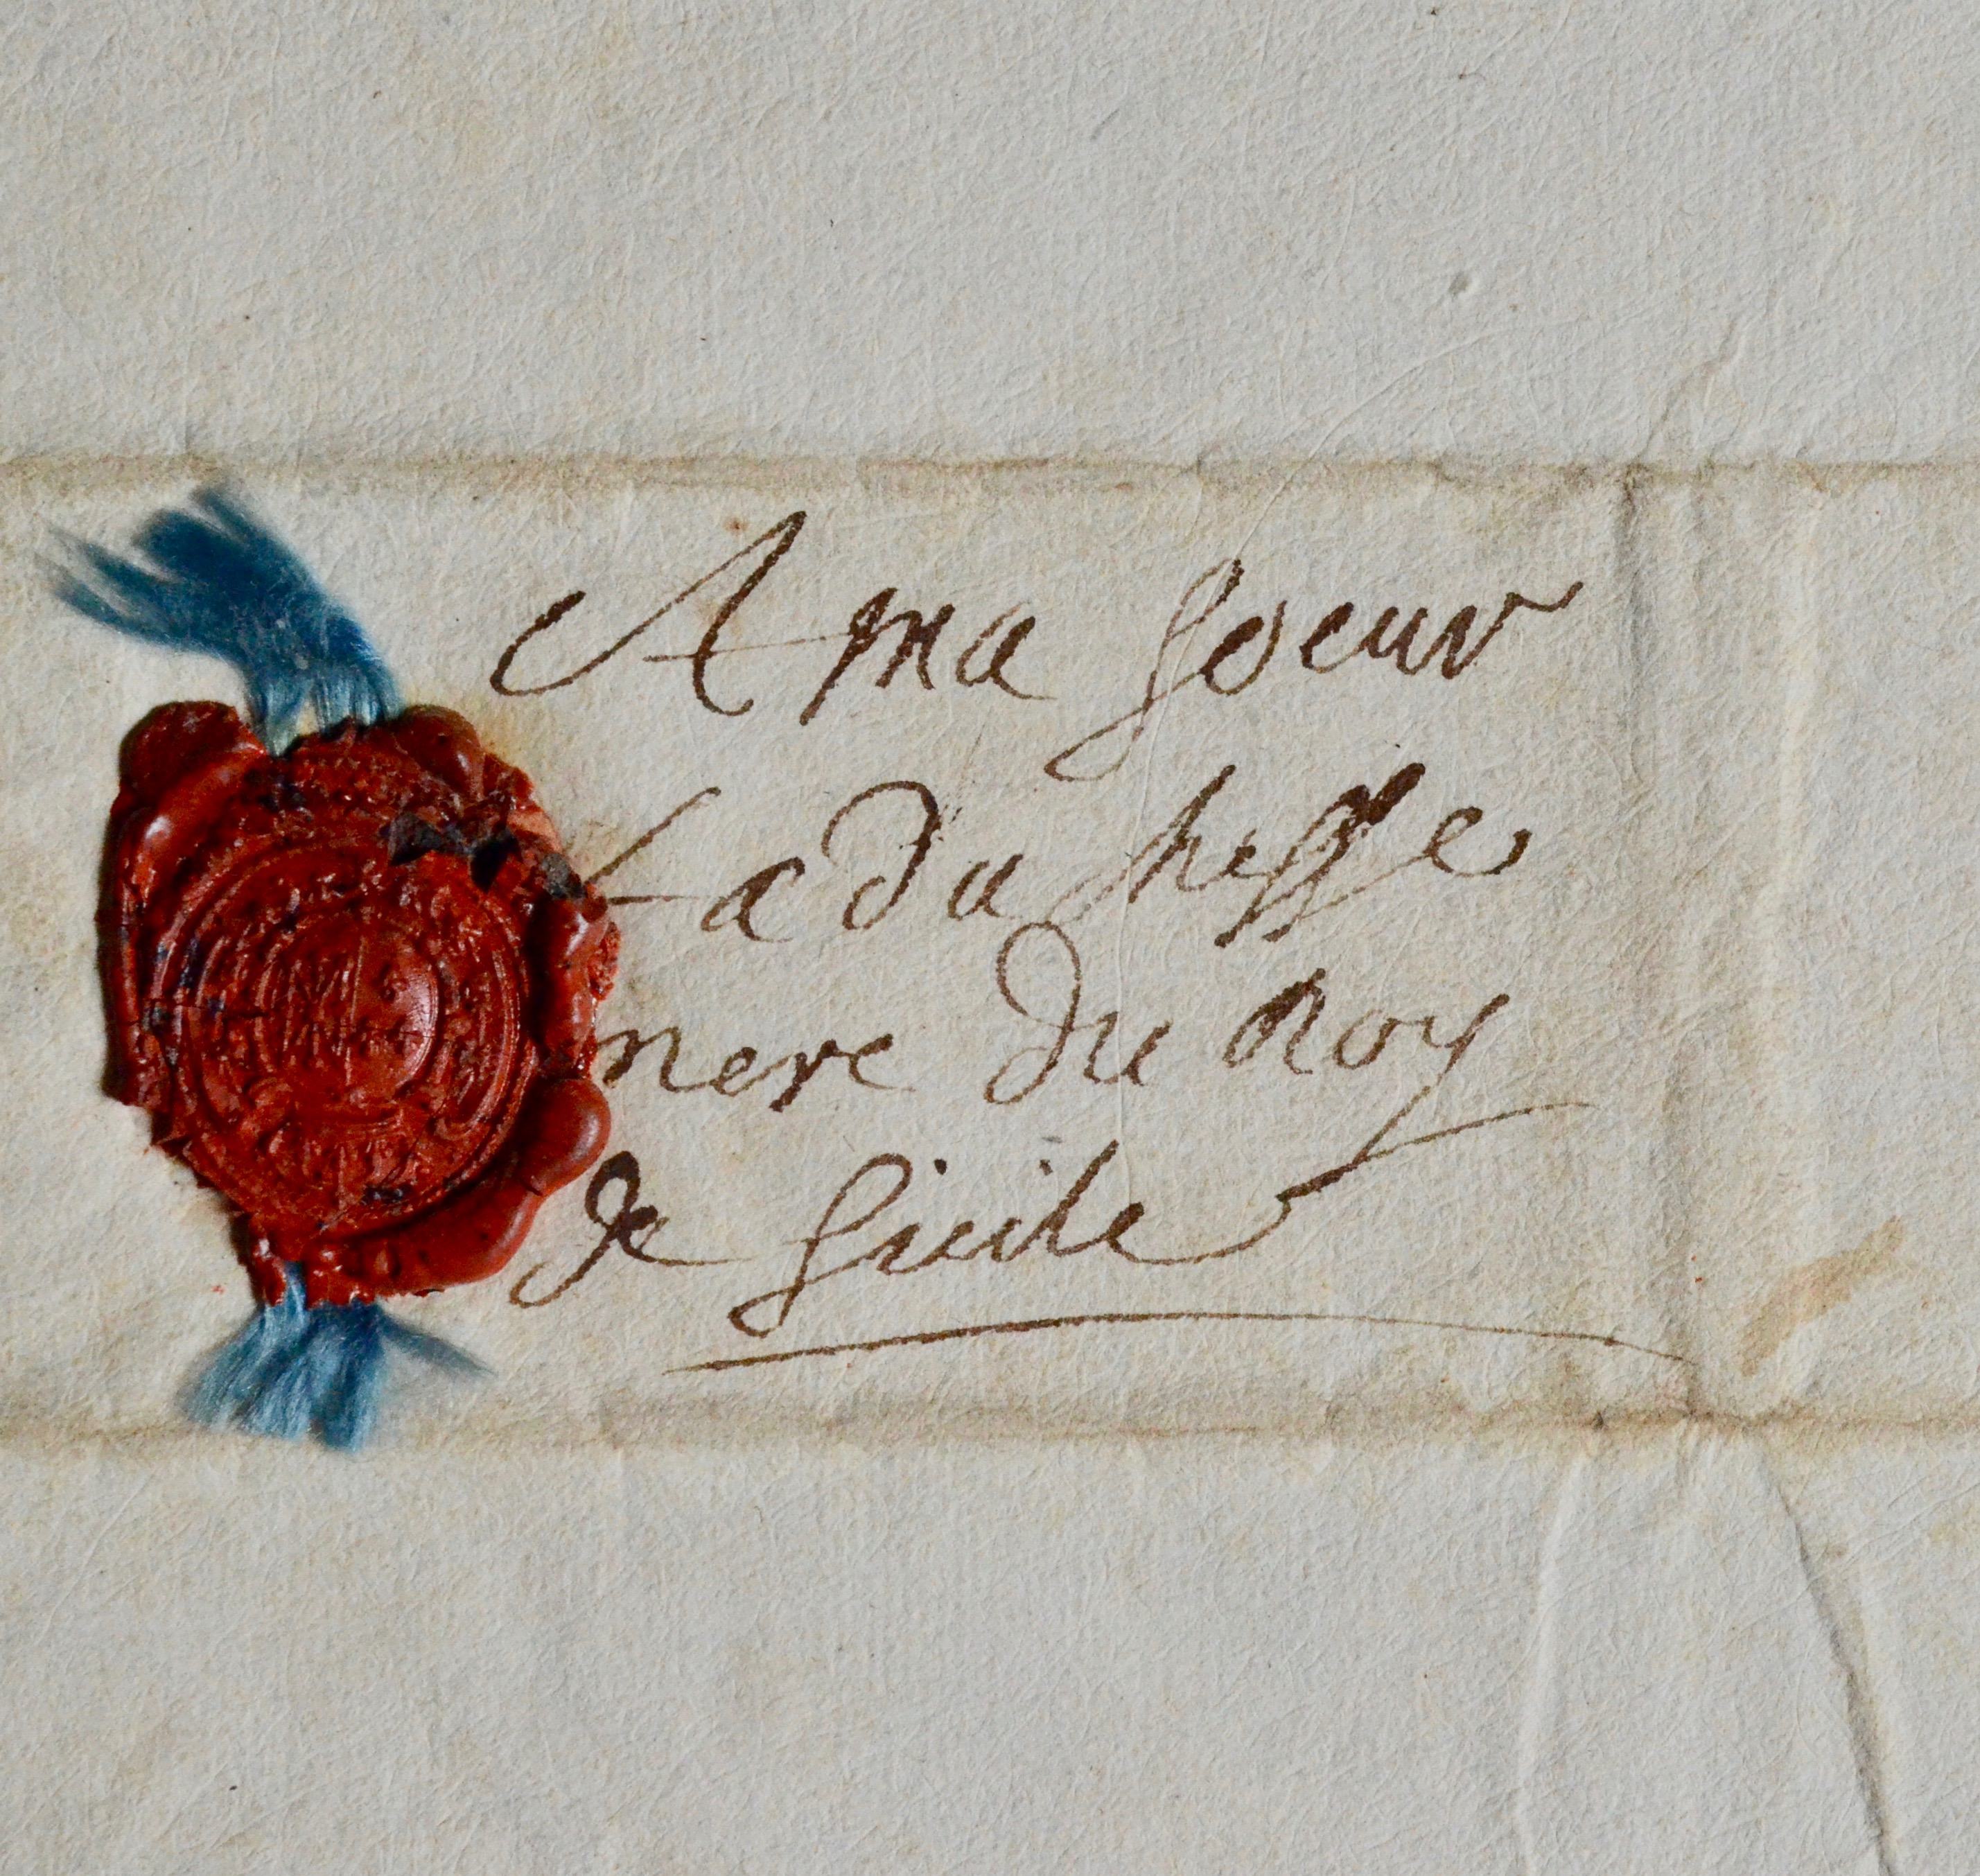 A ma soeur
La duchesse
mere du Roy
de sicile